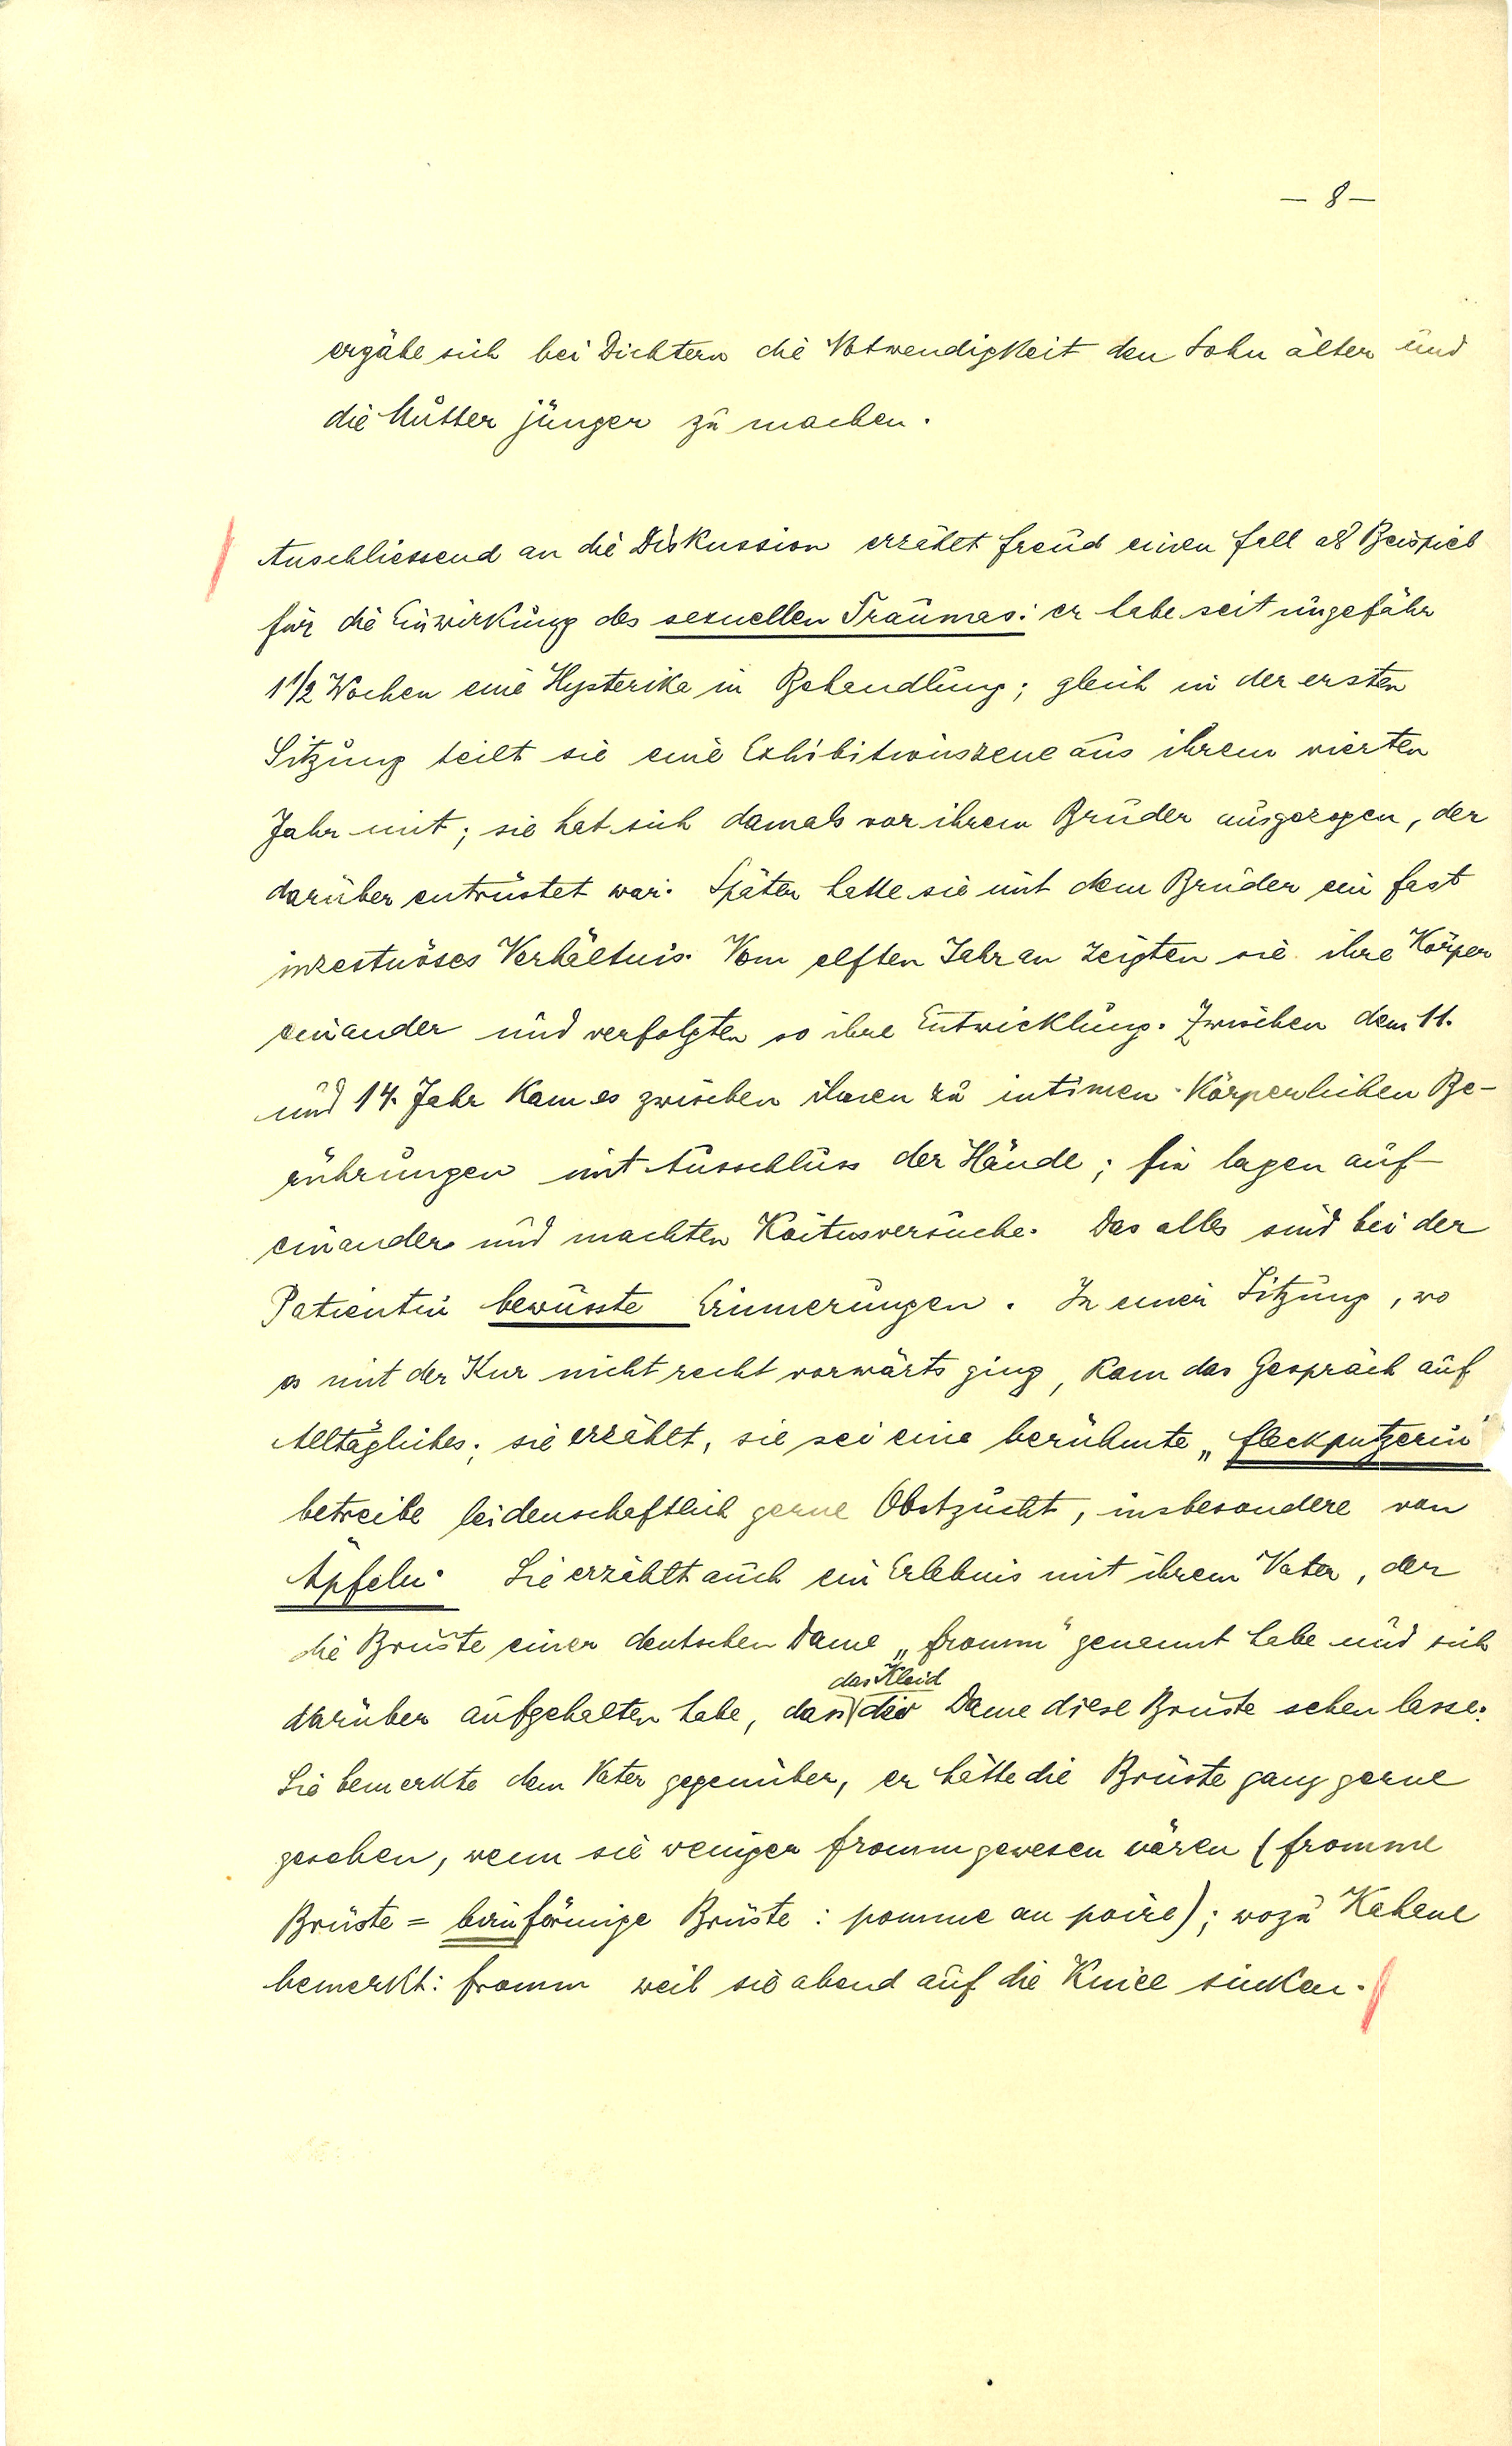 – 8 –
ergäbe sich bei Dichtern die Notwendigkeit den Sohn älter und
die Mutter jünger zu machen.
Anschliessend an die Diskussion erzählt Freud einen Fall als Beispiel
für die Einwirkung des sexuellen Traumas: er habe seit ungefähr
1½ Wochen eine Hysterika in Behandlung; gleich in der ersten
Sitzung teilt sie eine Exhibitionsszene aus ihrem vierten
Jahr mit; sie hat sich damals vor ihrem Bruder ausgezogen, der
darüber entrüstet war. Später hatte sie mit dem Bruder ein fast
inzestuöses Verhältnis. Vom elften Jahr an zeigten sie ihre Körper
einander und verfolgten so ihre Entwicklung. Zwischen dem 11.
und 14. Jahr kam es zwischen ihnen zu intimen körperlichen Be-
rührungen mit Ausschluss der Hände; sie lagen auf-
einander und machten Koitusversuche. Das alles sind bei der
Patientin bewusste Erinnerungen. In einer Sitzung, wo
es mit der Kur nicht recht vorwärts ging, kam das Gespräch auf
Alltägliches; sie erzählt, sie sei eine berühmte „Fleckputzerin"
betreibe leidenschaftlich gerne Obstzucht, insbesondere von
Äpfeln. Sie erzählt auch ein Erlebnis mit ihrem Vater, der
die Brüste einer deutschen Dame „fromm" genannt habe und sich
darüber aufgehalten habe, dass das Kleid der Dame diese Brüste sehen lasse.
Sie bemerkte dem Vater gegenüber, er hätte die Brüste ganz gerne
gesehen, wenn sie weniger fromm gewesen wären (fromme
Brüste = birnförmige Brüste : pomme au poire); wozu Kahane
bemerkt: fromm weil sie abend auf die Kniee sinken.